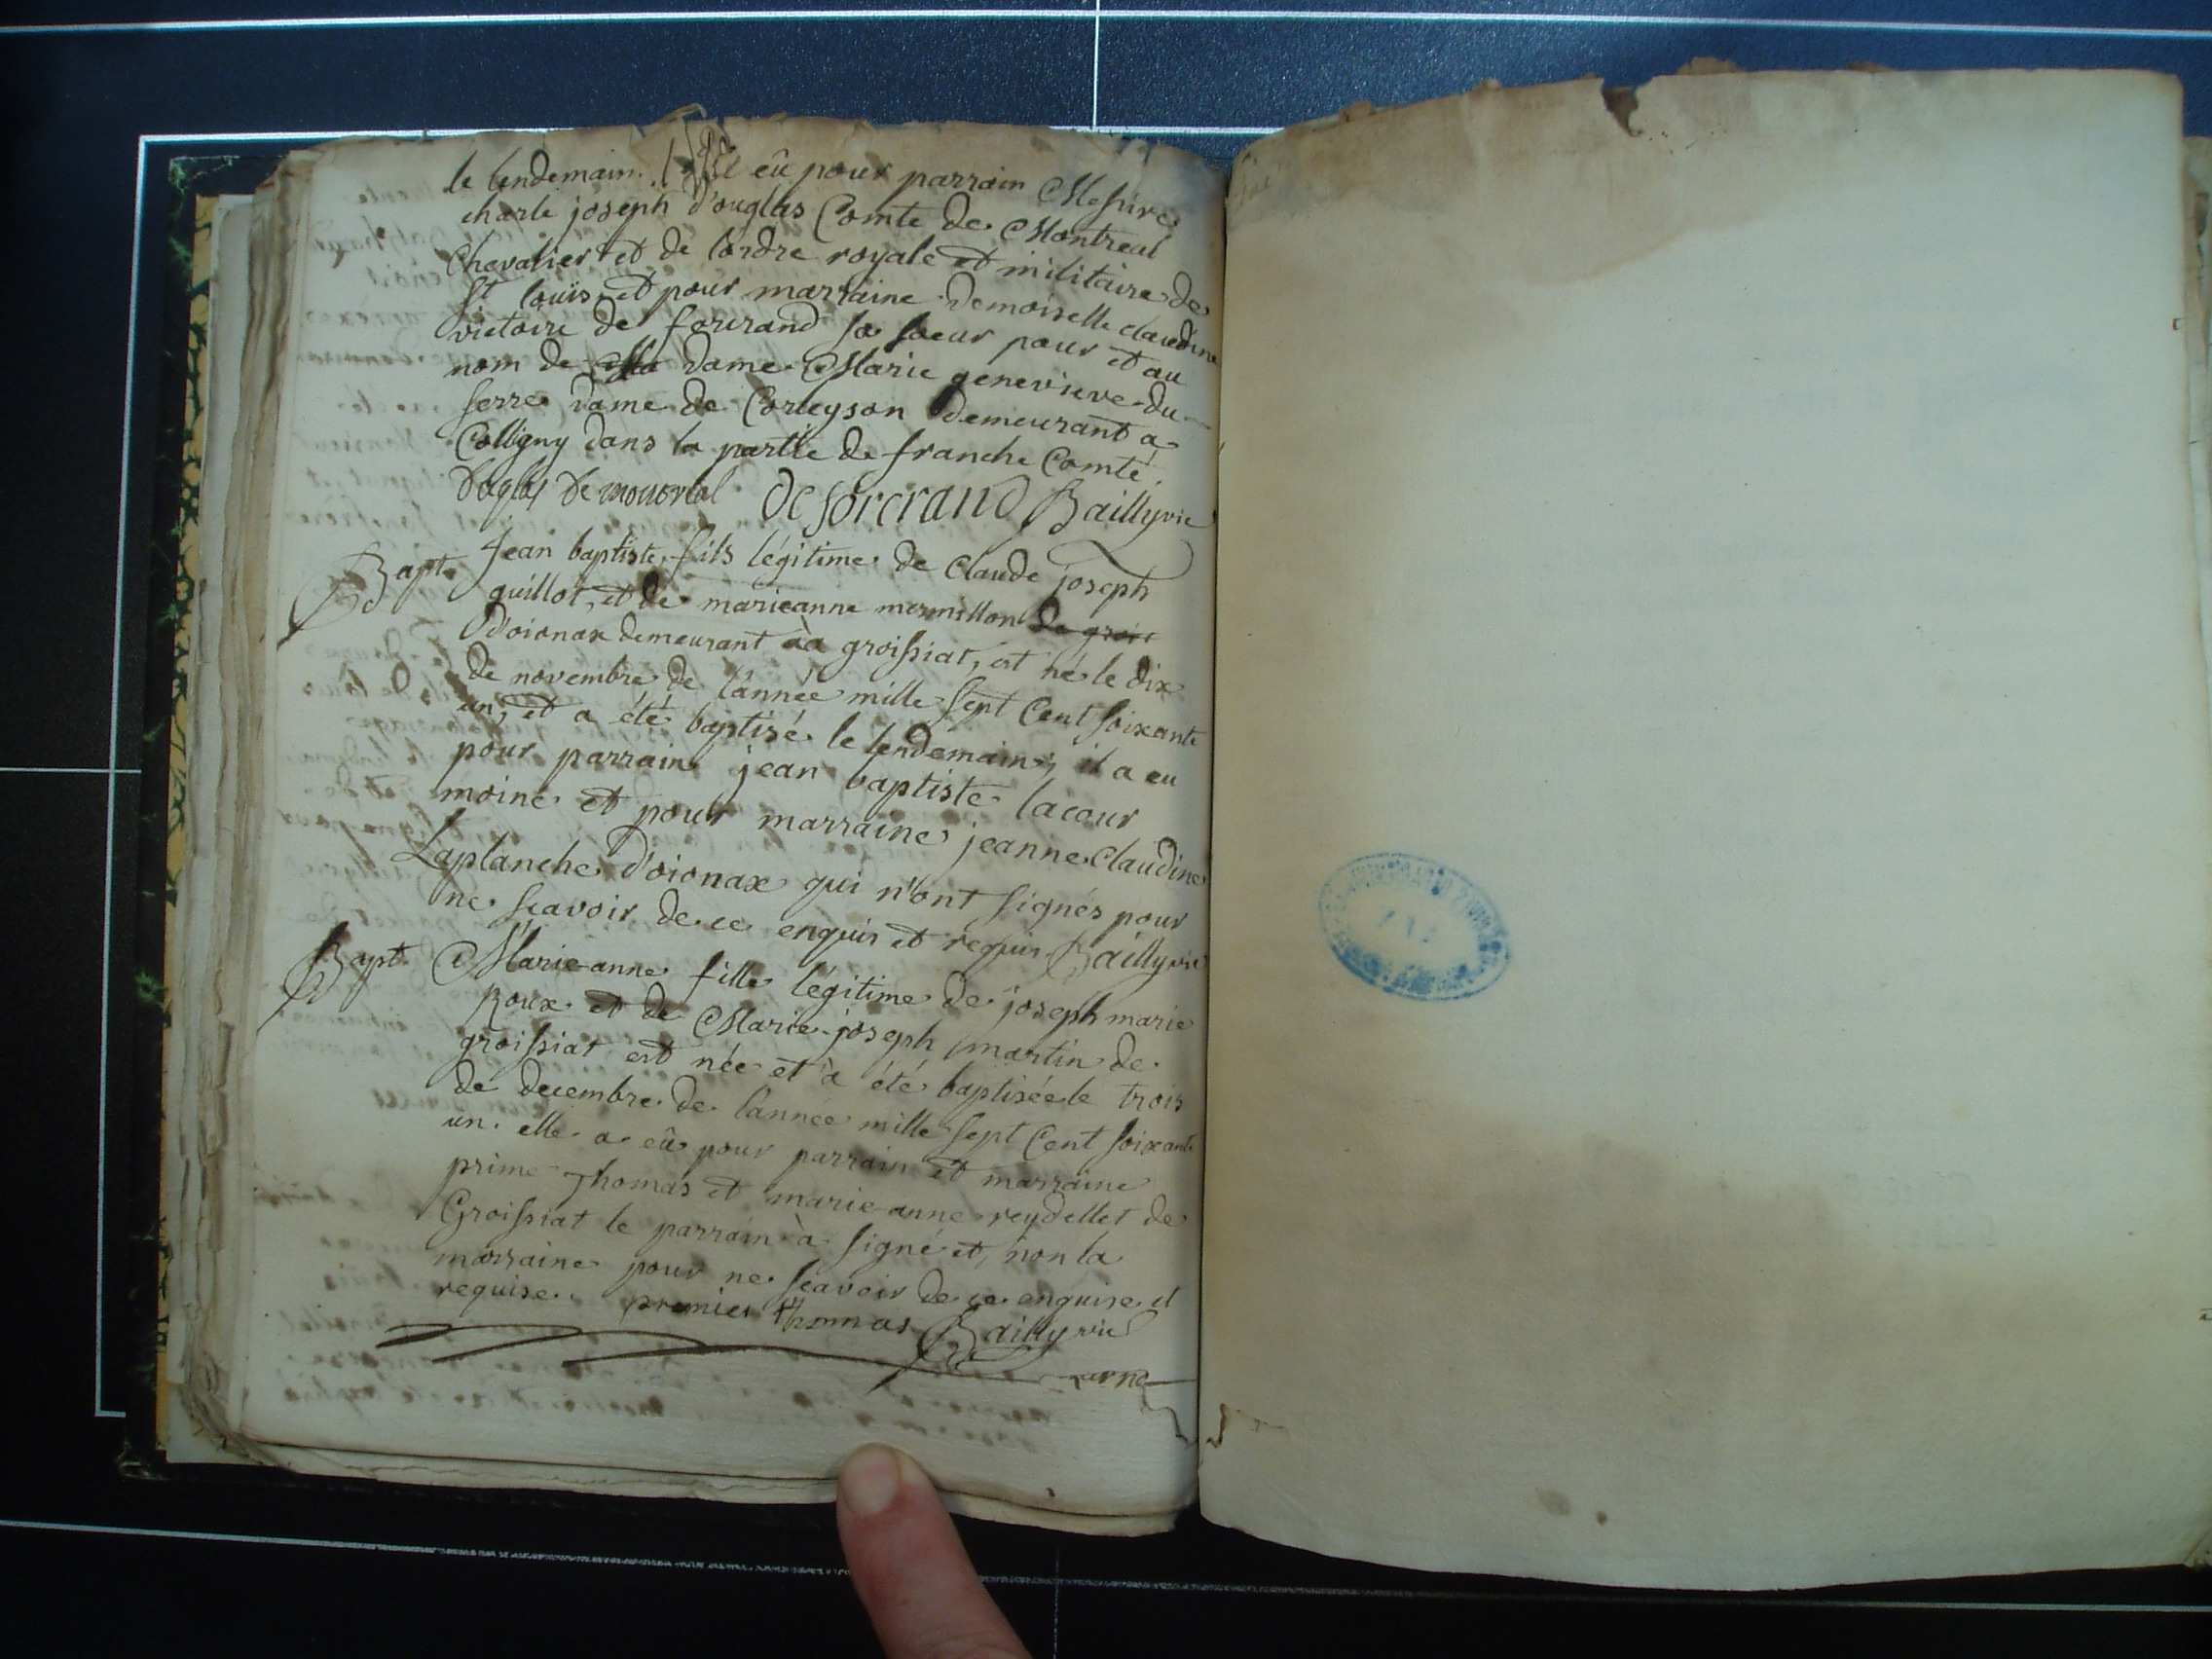 le lendemain. il a eû pour parrain Messire
charle joseph d'ouglas Comte de Montreal
Chevalier et de l'ordre royale et militaire de
St louis, et pour marraine demoiselle claudine
victoire de forcrand sa soeur pour et au
nom de dame Marie genevieve du
serre dame de Corleyson demeurant a
Colligny dans la partie de franche Comté.
de forcrand Bailly vic
Bapt. Jean baptiste fils légitime de Claude joseph
guillot, et de marieanne mermillon de groi
d'oionax demeurant àa groissiat, est né le dix
de novembre de l'année mille sept Cent soixante
un, et a été baptisé le lendemain; il a eu
pour parrain jean baptiste lacour
moine et pour marraine jeanne Claudine
Laplanche d'oionax qui n'ont signés pour
ne sçavoir de ce enquis et requis Bailly vic
Bapt. Marie-anne fille légitime de joseph marie
Roux et de Marie-joseph martin de
groissiat est née et à été baptisée le trois
de decembre de l'année mille sept Cent soixante
un. elle a eû pour parrain et marraine
prime Thomas et marie-anne reydellet de
Groissiat le parrain à signé et non la
marraine pour ne sçavoir de ce enquise et
requise. premier thommas Bailly vic